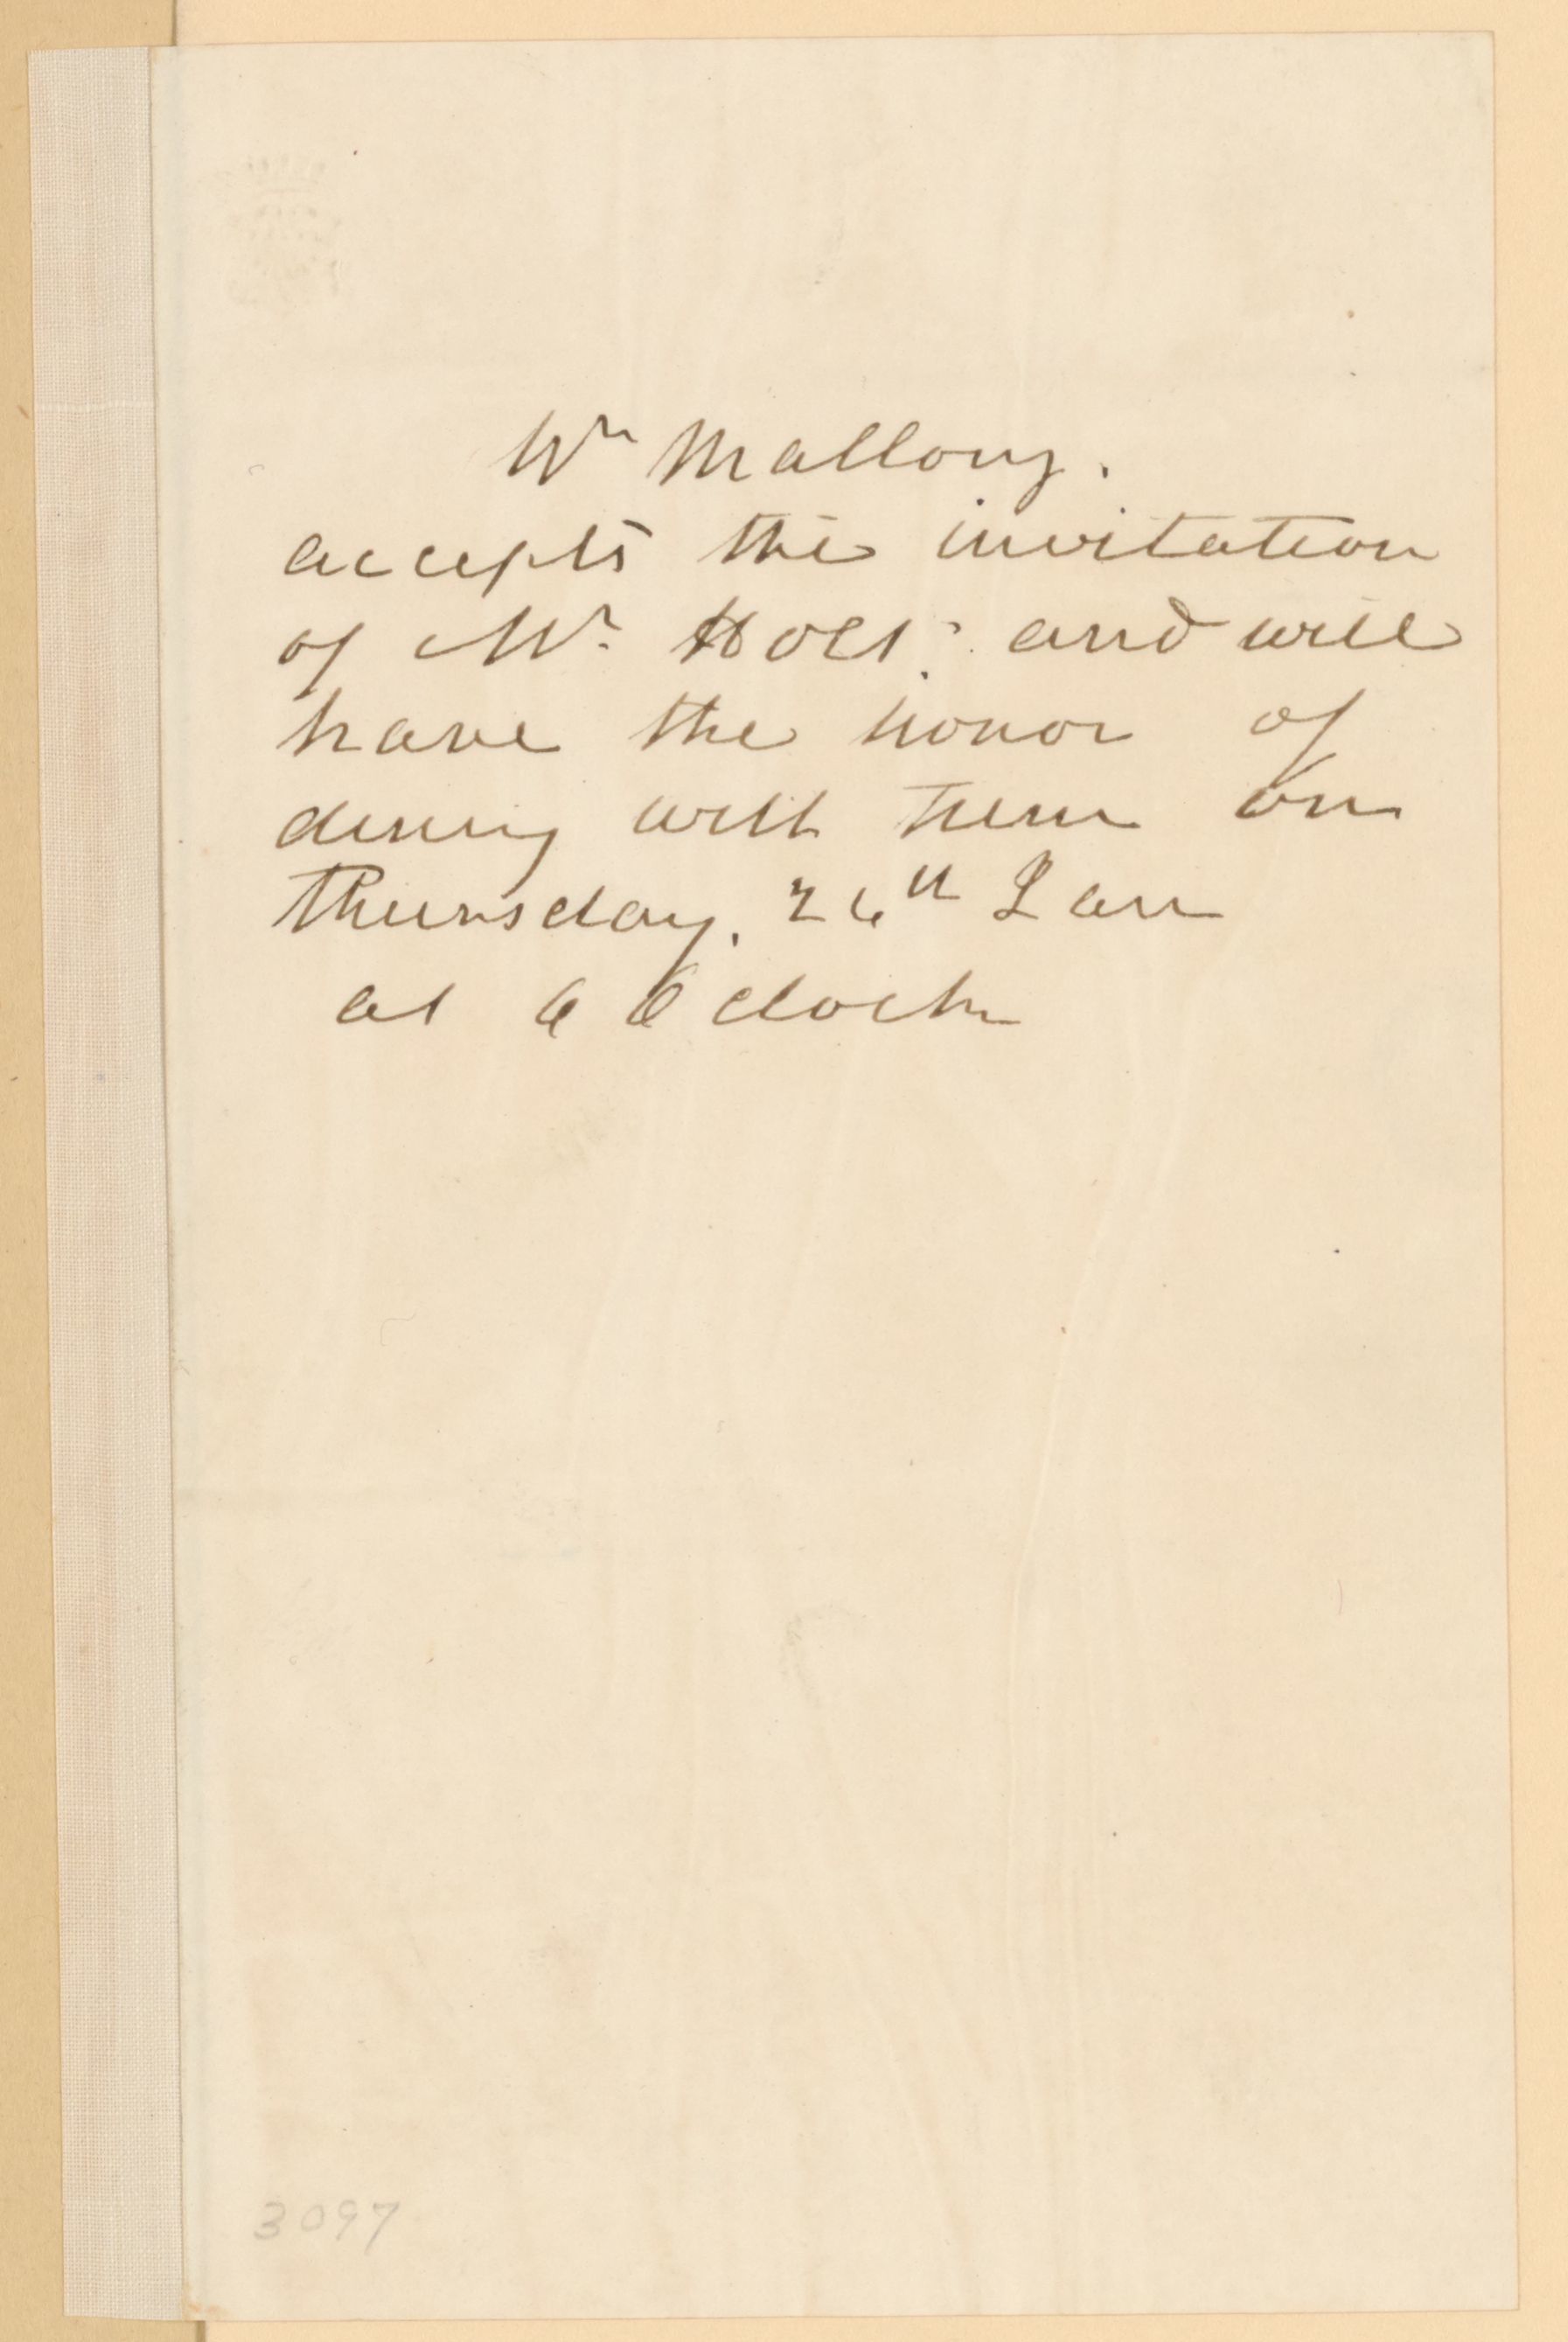 Mr Mallory.
accepts the invitation
of Mr Holt. and will
have the honor of
dining with them on
Thursday. 26th Jan
at 6 O clock
3097